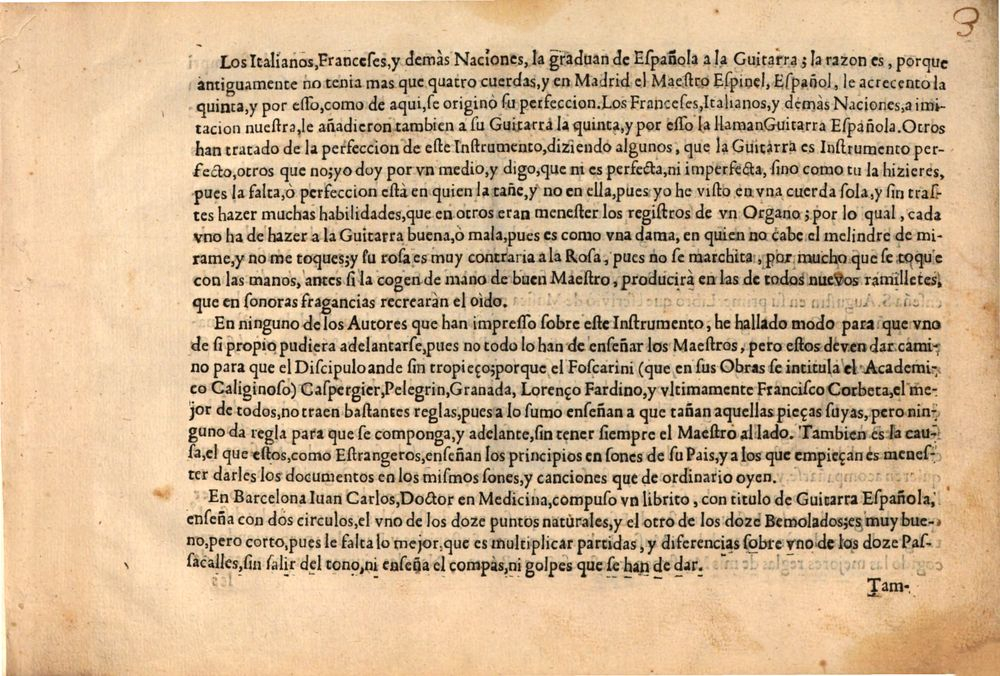 3
Los Italianos,Franceses,y demàs Naciones, la graduan de Española a la Guitarra; la razon es, porque
antiguamente no tenia mas que quatro cuerdas,y en Madrid el Maestro Espinel, Español, le acrecentò la
quinta,y por esso,como de aqui,se originò su perfeccion.Los Franceses,Italianos,y demàs Naciones,a imi-
tacion nuestra,le añadieron tambien a su Guitarra la quinta,y por esso la llamanGuitarra Española.Otros
han tratado de la perfeccion de este Instrumento,diziendo algunos, que la Guitarra es Instrumento per-
fecto,otros que no;yo doy por vn medio,y digo,que ni es perfecta,ni imperfecta, sino como tu la hizieres,
pues la falta,ò perfeccion està en quien la tañe,y no en ella,pues yo he visto en vna cuerda sola,y sin tras-
tes hazer muchas habilidades,que en otros eran menester los registros de vn Organo;por lo qual, cada
vno ha de hazer a la Guitarra buena,ò mala,pues es como vna dama, en quien no cabe el melindre de mi-
rame,y no me toques;y su rosa es muy contraria a la Rosa, pues no se marchita, por mucho que se toque
con las manos, antes si la cogen de mano de buen Maestro, producirà en las de todos nuevos ramilletes,
que en sonoras fragancias recrearàn el oìdo.
En ninguno de los Autores que han impresso sobre este Instrumento, he hallado modo para que vno
de si propio pudiera adelantarse,pues no todo lo han de enseñar los Maestros, pero estos deven dar cami-
no para que el Discipulo ande sin tropieço;porque el Foscarini (que en sus Obras se intitula el Academi-
co Caliginoso) Caspergier,Pelegrin,Granada, Lorenço Fardino,y vltimamente Francisco Corbeta,el me-
jor de todos,no traen bastantes reglas,pues a lo sumo enseñan a que tañan aquellas pieças suyas, pero nin-
guno da regla para que se componga,y adelante,sin tener siempre el Maestro al lado. Tambien es la cau-
sa,el que estos,como Estrangeros,enseñan los principios en sones de su Pais,y a los que empieçan es menes-
ter darles los documentos en los mismos sones,y canciones que de ordinario oyen.
En Barcelona Iuan Carlos,Doctor en Medicina,compuso vn librito, con titulo de Guitarra Española,
enseña con dos circulos,el vno de los doze puntos naturales,y el otro de los doze Bemolados;es muy bue-
no,pero corto,pues le falta lo mejor,que es multiplicar partidas, y diferencias sobre vno de los doze Pas-
sacalles,sin salir del tono,ni enseña el compàs,ni golpes que se han de dar.
Tam-